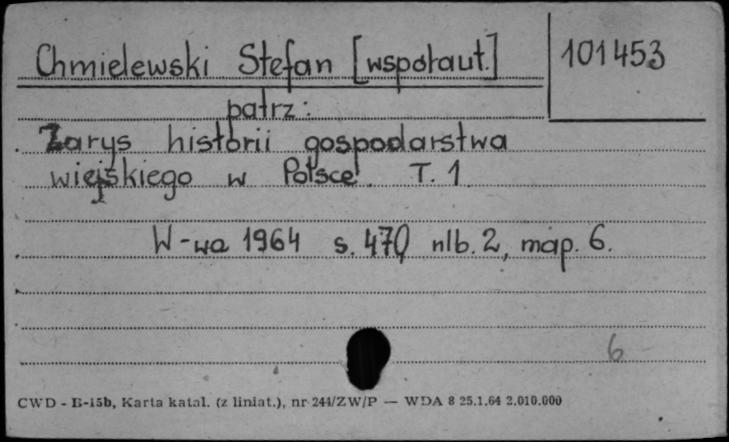 Chmielewski Stefan [współaut.] 101453
patrz:
Zarys historii gospodarstwa
wiejskiego w Polsce. T. 1
W-wa 1964 s. 470 nlb. 2, map. 6.
6
CWD - B-15b, Karta katal. (z liniat.), nr 244/ZW/P — WDA 8 25.1.64 2.010.000